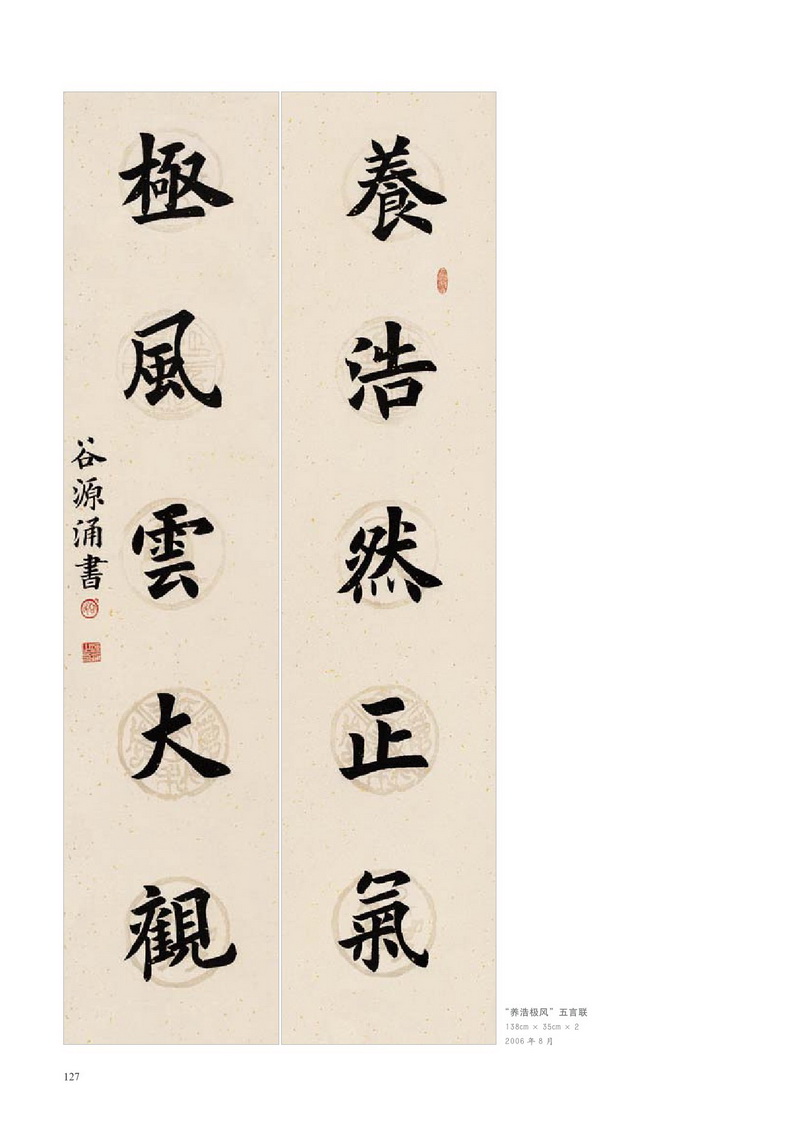 養浩然正氣
極風雲大觀
谷源涌書
“养浩极风”五言联
138cm × 35cm × 2
2006 年 8 月
127